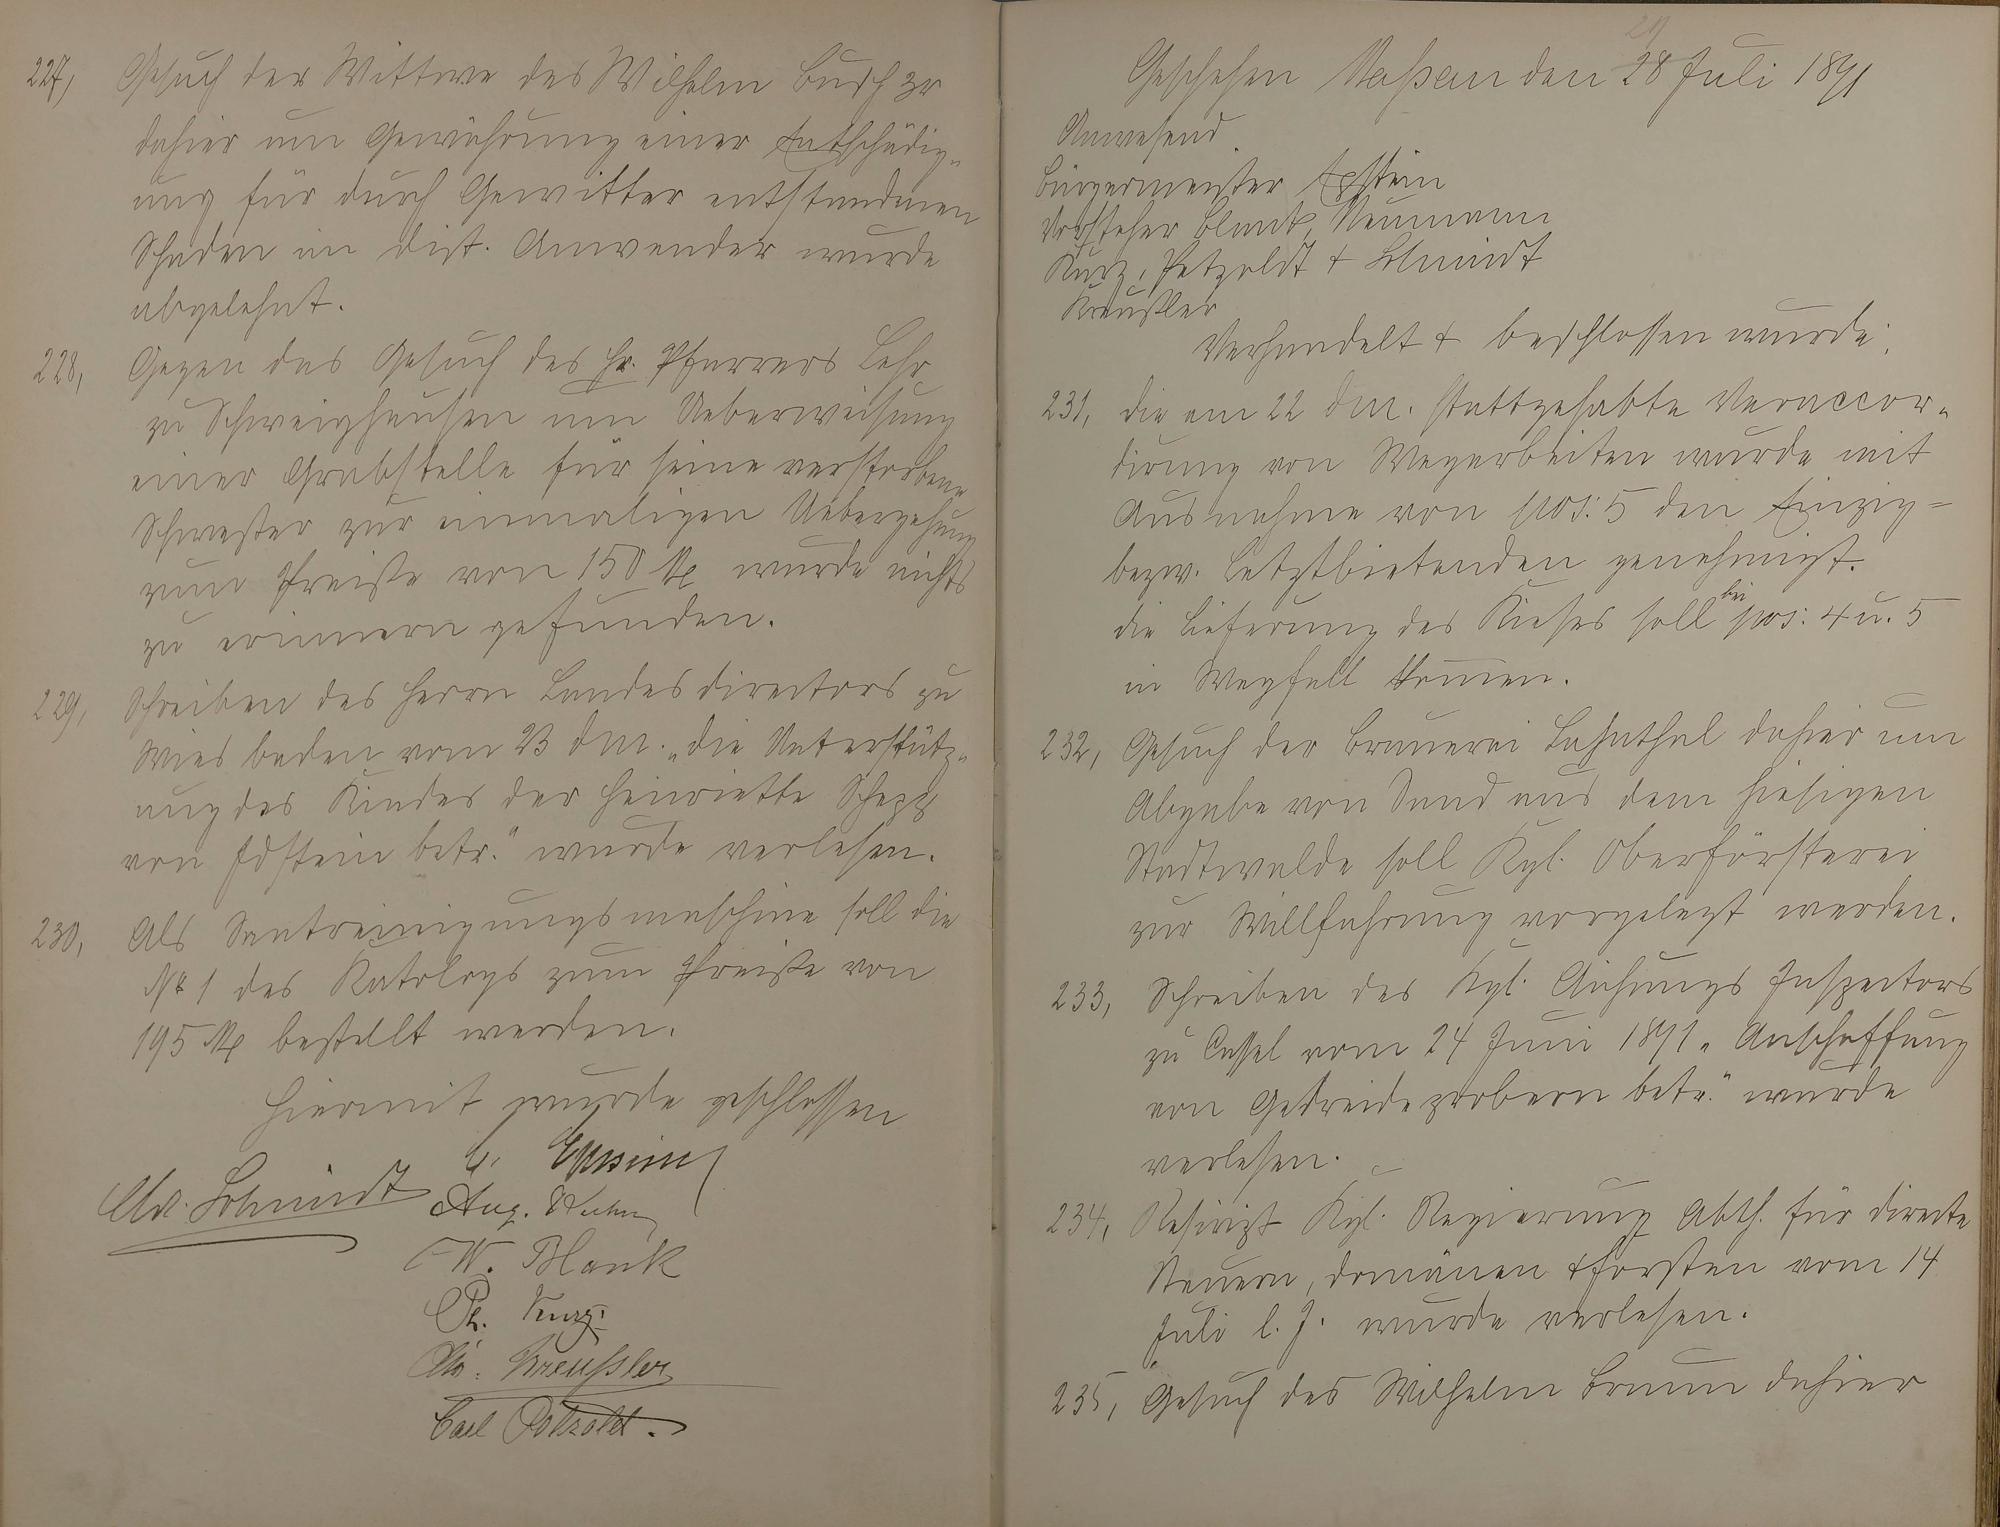 227, Gesuch der Wittwe des Wilhelm Busch 3r
dahier um Gewährung einer Entschädig„
ung für durch Gewitter entstandnen
Schaden im Dist. Anwender wurde
abgelehnt.
228, Gegen das Gesuch des Hr. Pfarrers Lehr
zu Schweighausen um Ueberweisung
einer Grabstelle für seine verstorbene
Schwester zur einmaligen Uebergehung
zum Preiße von 150 M wurde nichts
zu erinnern gefunden.
229, Schreiben des Herrn Landesdirectors zu
Wiesbaden vom 23 dM. „die Unterstütz„
ung des Kindes der Henriette
von Idstein betr." wurde verlesen.
230, Als Saatreinigungsmaschine soll die
No 1 des Katalogs zum Preiße von
195 M bestellt werden.
Hiermit wurde geschlossen
Schmidt
Aug.
W. Blank
Ph. Kurz.
Kreußler
Carl Petzoldt.
29
Geschehen Naßau den 28 Juli 1891
Anwesend
Bürgermeister Epstein
Vorsteher Blank, Neumann
Kurz, Petzoldt + Schmidt
Kreußler
Verhandelt + beschlossen wurde:
231, Die am 22 dM. stattgehabte Veraccor„
dirung von Wegarbeiten wurde mit
Ausnahme von pos: 5 den Einzig=
bezw. Letztbietenden genehmigt.
Die Lieferung des Kieses soll bei pos: 4 u. 5
in Wegfall kommen.
232, Gesuch der Brauerei Lahnthal dahier um
Abgabe von Sand aus dem hiesigen
Stadtwalde soll Kgl. Oberförsterei
zur Willfahrung vorgelegt werden.
233, Schreiben des Kgl. Aichungs Inspectors
zu Cassel vom 24 Juni 1891 „Anschaffung
von Getreideprobern betr." wurde
verlesen.
234, Rescript Kgl. Regierung Abth. für directe
Steuern, Domänen + Forsten vom 14
Juli l. J. wurde verlesen.
235, Gesuch des Wilhelm Braun dahier